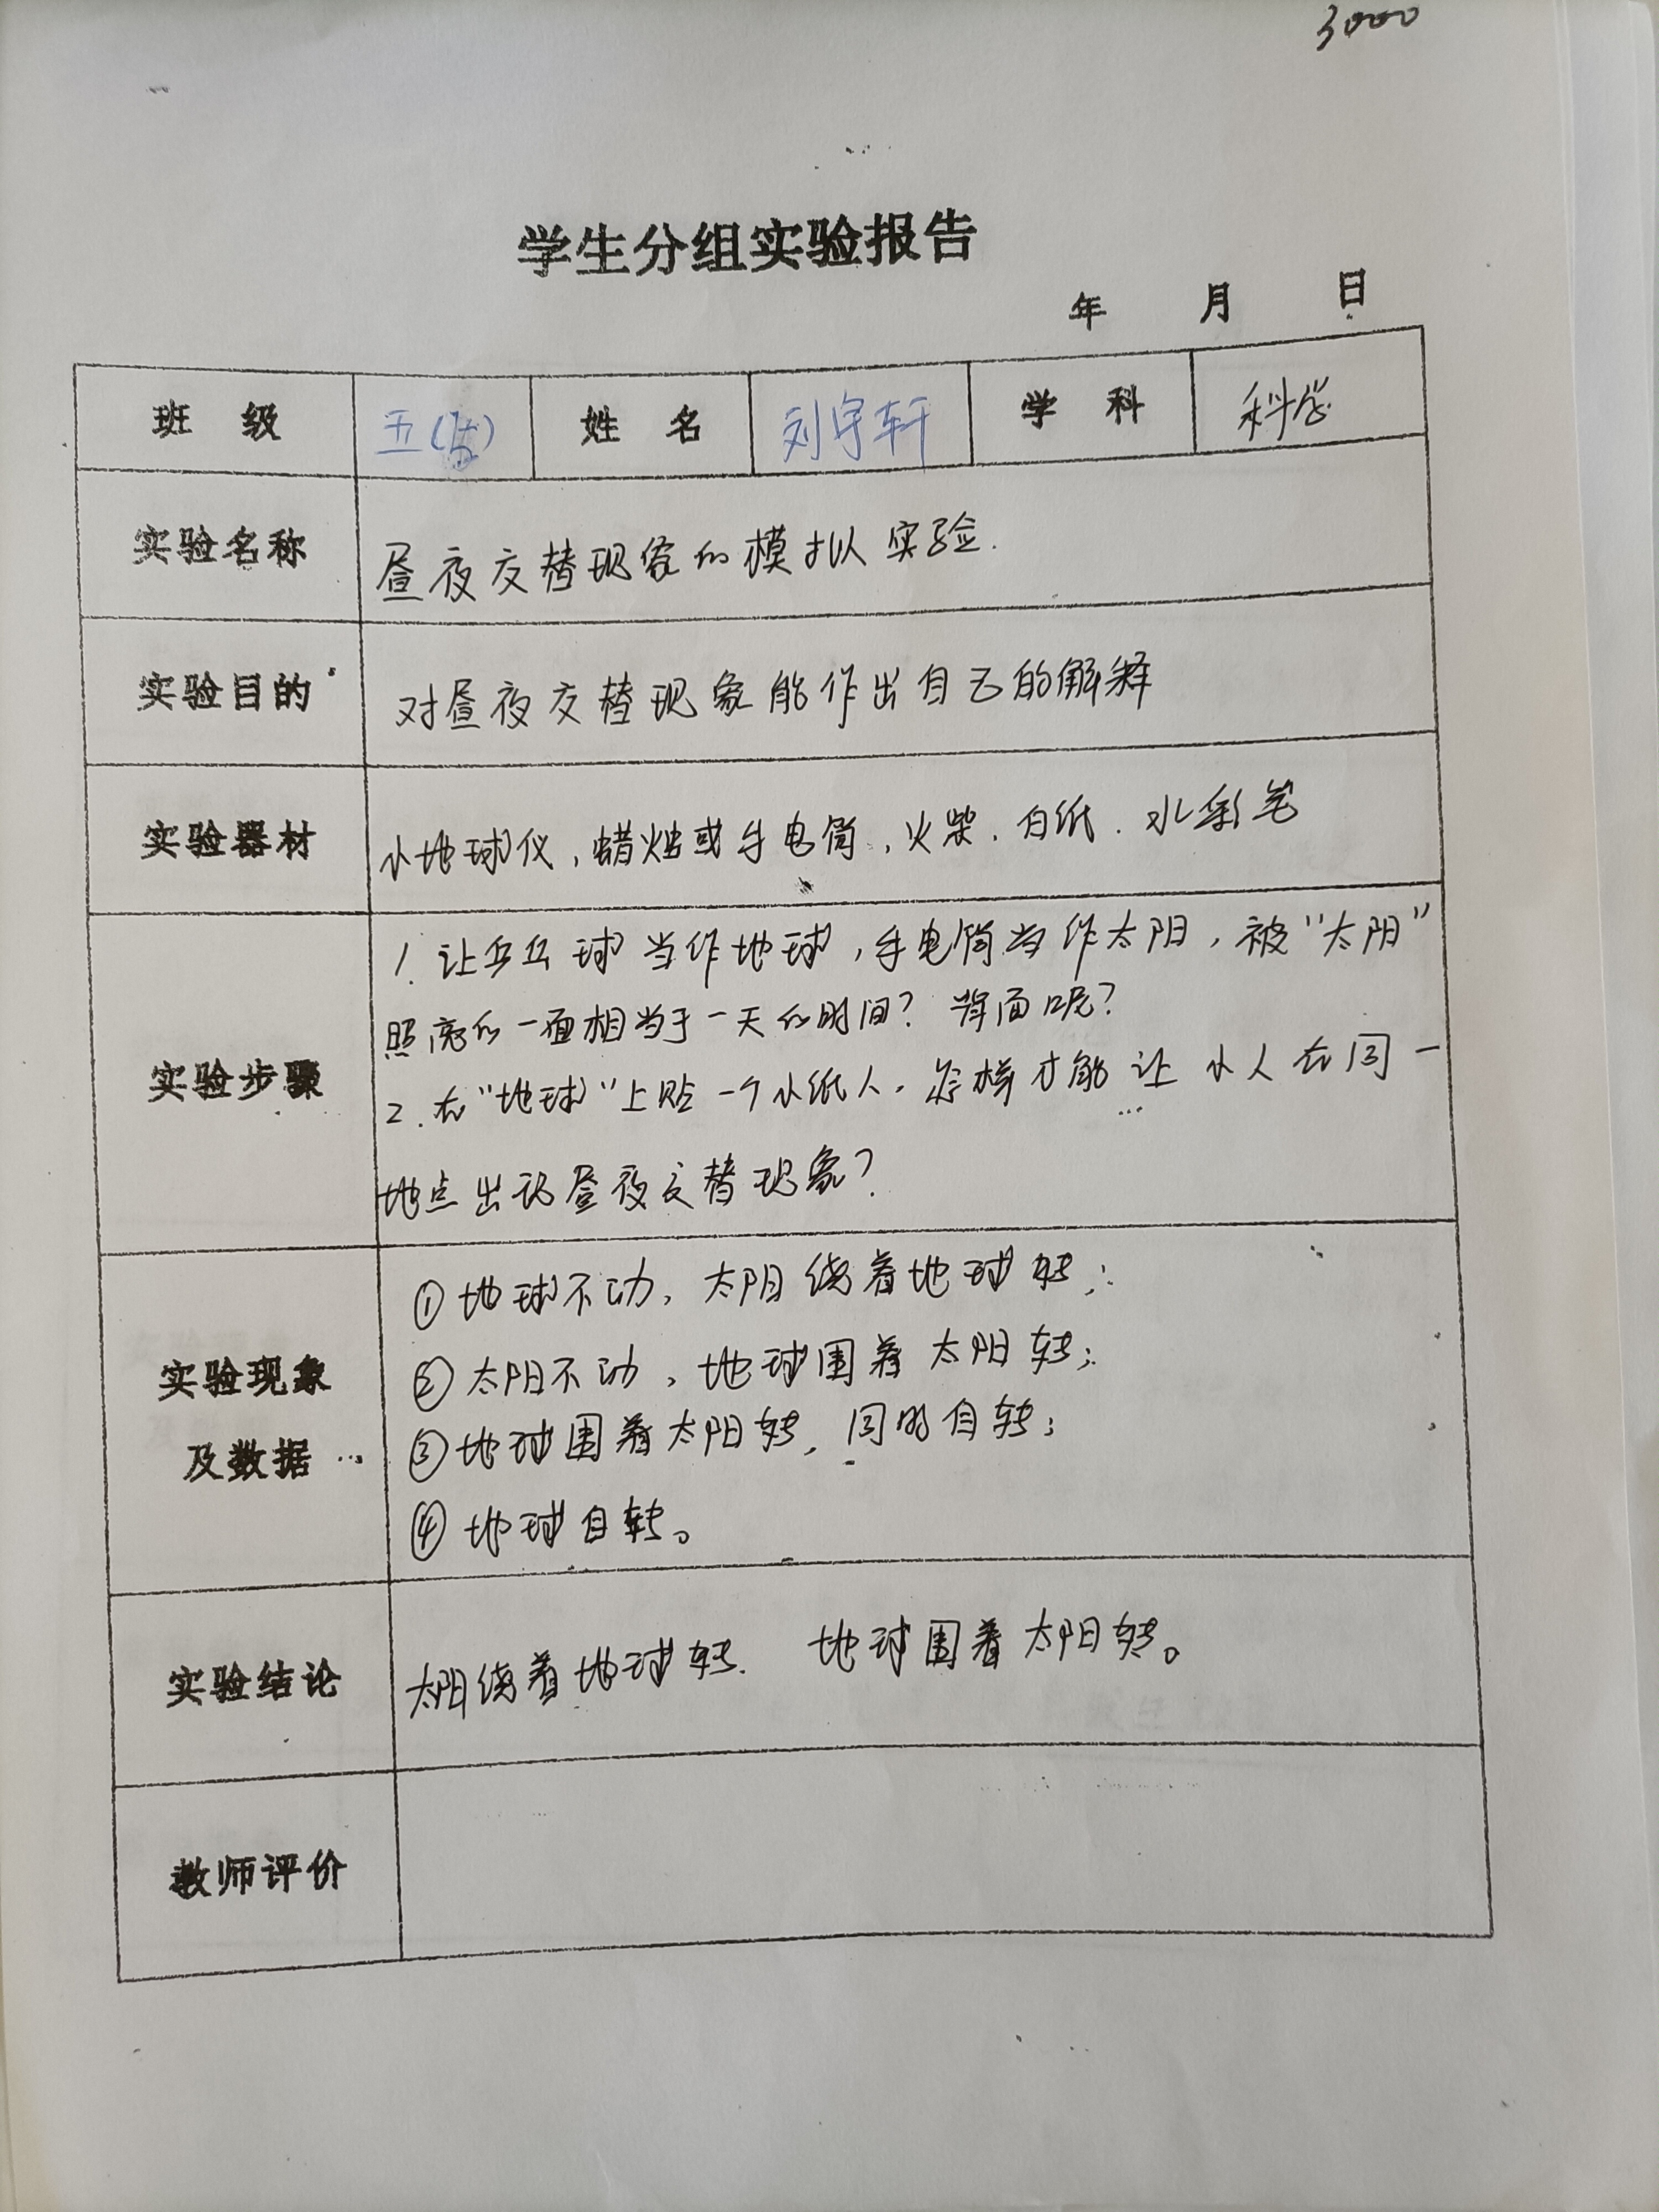 3000
学生分组实验报告
年 月 日
班 级 五( ) 姓 名 刘宇轩 学 科 科学
实验名称 昼夜交替现象的模拟实验.
实验目的 对昼夜交替现象能作出自己的解释
实验器材 小地球仪,蜡烛或手电筒,火柴.白纸.水彩笔
1.让乒乓球当作地球,手电筒当作太阳,被“太阳”
照亮的一面相当于一天的时间?背面呢?
实验步骤
2.在“地球”上贴一个小纸人.怎样才能让小人在同一
地点出现昼夜交替现象?
①地球不动,太阳绕着地球转;
②太阳不动,地球围着太阳转;
实验现象
③地球围着太阳转,同时自转;
及数据
④地球自转。
实验结论 太阳绕着地球转. 地球围着太阳转。
教师评价